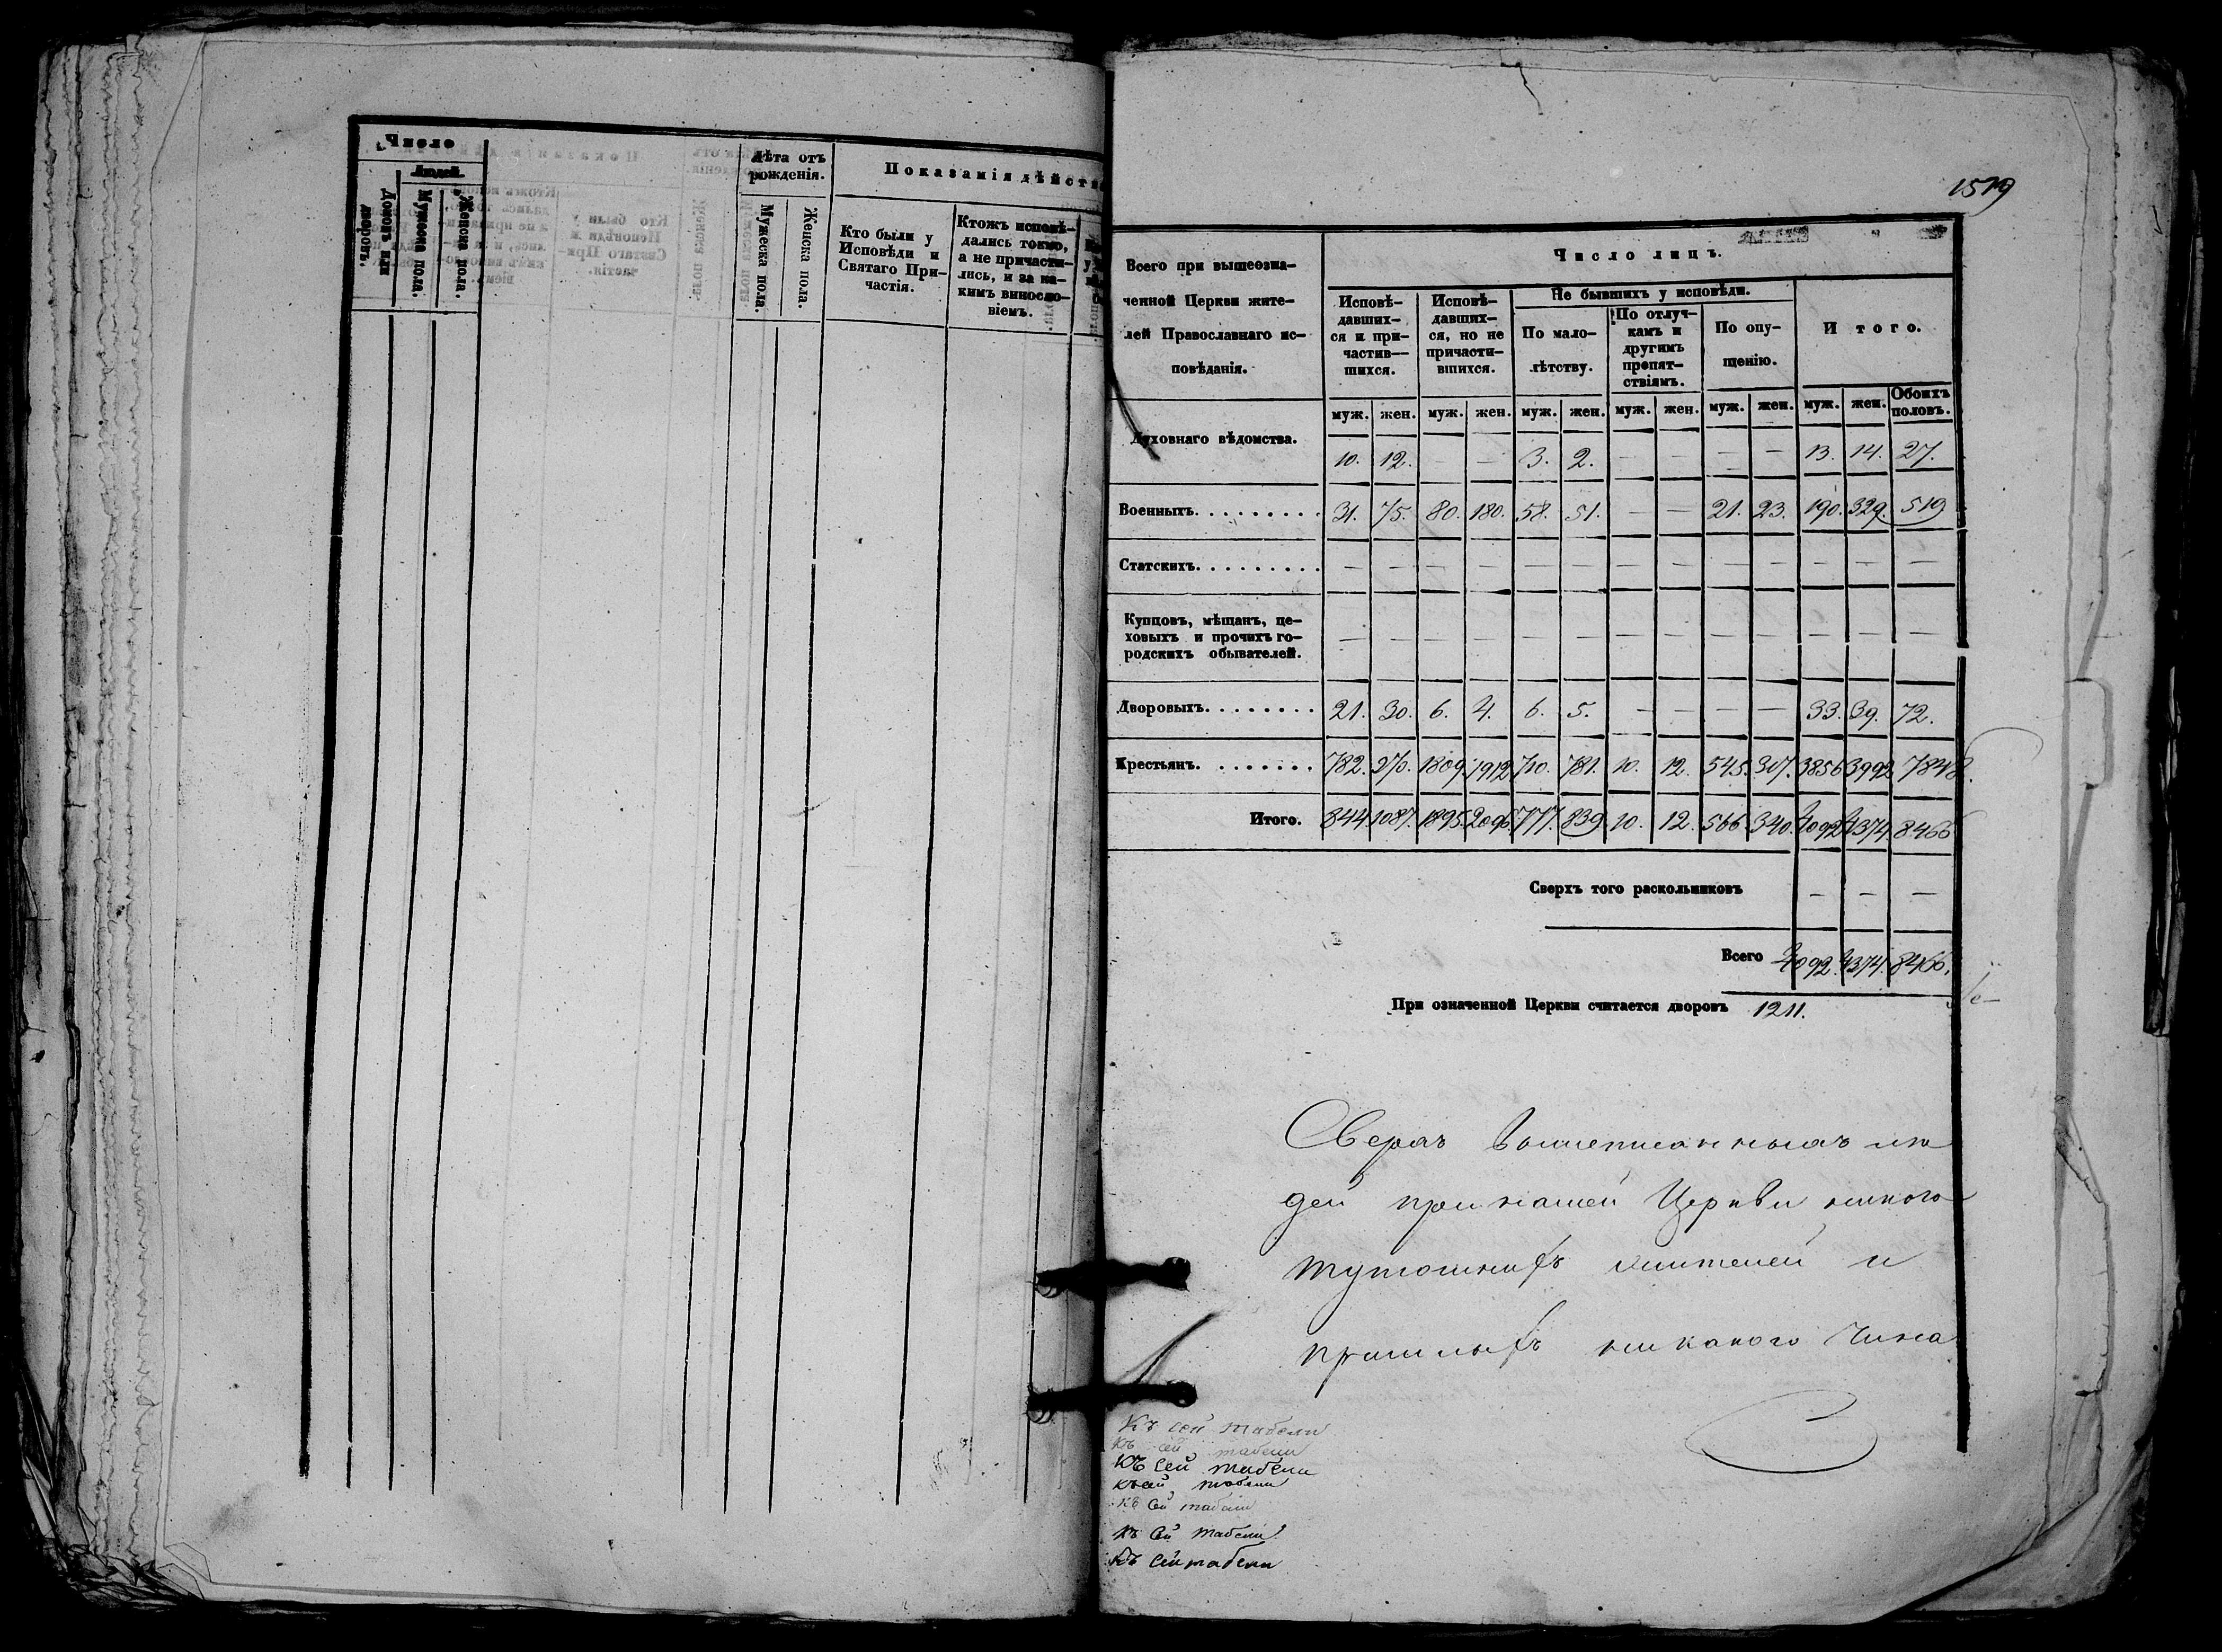 Число
Людей
Домовъ или дворовъ.
Мужеска пола.
Женска пола.
Лѣта отъ рожденія.
Мужеска пола.
Женска пола.
Показанія дѣйств
Кто были у
Исповѣди и
Святаго При-
частія.
Ктожъ исповѣ-
дались токмо,
а не причасти-
лись, и за ка-
кимъ виносло-
віемъ.
1519
Всего при вышеозна-
ченной Церкви жите-
лей Православнаго ис-
повѣданія.
Число лицъ.
Исповѣ-
давших-
ся и при-
частив-
шихся.
Исповѣ-
давших-
ся, но не
причасти-
вшихся.
Не бывшихъ у исповѣди.
По мало-
лѣтству.
По отлуч-
камъ и
другимъ
препят-
ствіямъ.
По опу-
щенію.
Итого.
муж. жен. муж. жен. муж. жен. муж. жен. муж. жен. муж. жен. Обоихъ половъ.
Духовнаго вѣдомства. 10. 12. — — 3. 2. — — — — 13. 14. 27.
Военныхъ. . . . . . . . . 31. 75. 80. 180. 58. 51. — — 21. 23. 190. 329. 519
Статскихъ. . . . . . . . . — — — — — — — — — — — — —
Купцовъ, мѣщанъ, це-
ховыхъ и прочихъ го-
родскихъ обывателей. — — — — — — — — — — — — —
Дворовыхъ. . . . . . . . 21. 30. 6. 4. 6. 5. — — — — 33. 39. 72.
Крестьянъ. . . . . . . . 782. 970. 1809. 1912 710. 781. 10. 12. 545. 307. 3856 3992 7848.
Итого. 844. 1087. 1895. 2096. 777. 839. 10. 12. 566. 340. 4092 4374. 8466
Сверхъ того раскольниковъ — — —
Всего 4092. 4374. 8466.
При означенной Церкви считается дворовъ 1211.
Сверхъ вышеписанныхъ лю
дей при нашей Церкви никого
тутошнихъ жителей и
пришлыхъ никакого чина
Къ сей табели
Къ сей табели
Къ сей табели
Къ сей табели
Къ сей табели
Къ сей табели
Къ сей табели